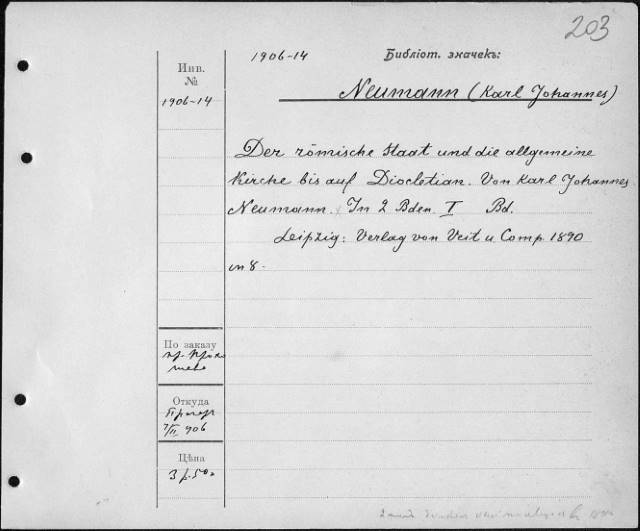 203
1906-14 Библіот. значекъ:
Инв.
№
1906-14
Neumann (Karl Johannes)
Der römische Staat und die allgemeine
Kirche bis auf Diocletian. Von Karl Johannes
Neumann. In 2 Bden. I Bd.
Leipzig: Verlag von Veit u. Comp. 1890
in 8.
По заказу
пр.
Откуда
7/II 906
Цѣна
3 р. 50